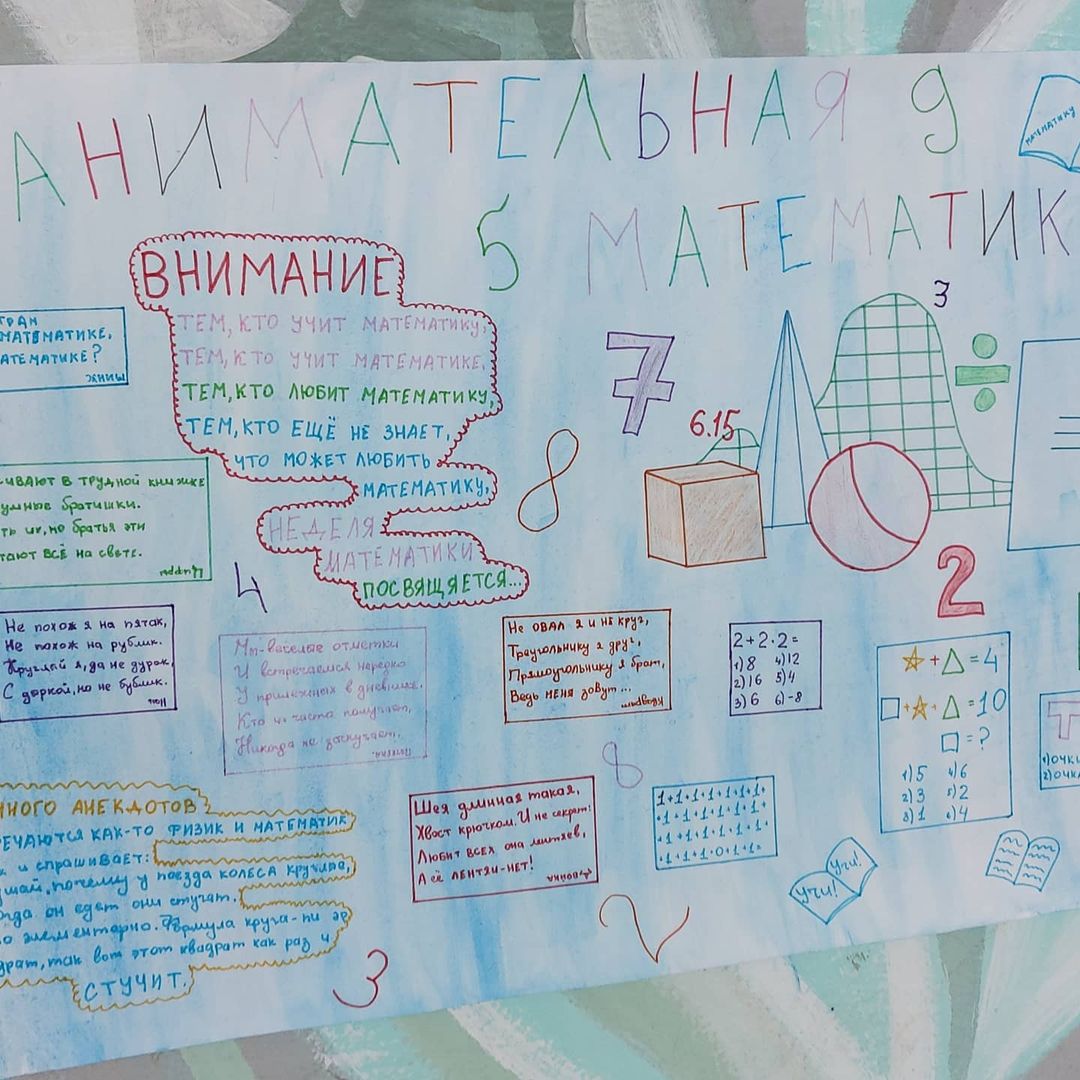 АНИМАТЕЛЬНАЯ 9
МАТЕМАТИКУ
5 МАТЕМАТИК
ВНИМАНИЕ
ТЕМ, КТО УЧИТ МАТЕМАТИКУ,
ТЕМ, КТО УЧИТ МАТЕМАТИКЕ,
ТЕМ, КТО ЛЮБИТ МАТЕМАТИКУ,
ТЕМ, КТО ЕЩЁ НЕ ЗНАЕТ,
ЧТО МОЖЕТ ЛЮБИТЬ
МАТЕМАТИКУ,
НЕДЕЛЯ
МАТЕМАТИКИ
ПОСВЯЩЯЕТСЯ...
МАТЕМАТИКЕ,
АТЕМАТИКЕ?
3
7
6.15
÷
8
2
4
ИВАЮТ В ТРУДНОЙ КНИЖКЕ
УМНЫЕ братишки.
ть их, но братья эти
тают ВСЁ на свете.
Цифры
Не похож я на пятак,
Не похож на рублик.
Круглый я, да не дурак,
С дыркой, но не бублик.
Ноль
Мы-весёлые отметки
И встречаемся нередко
У прилежных в дневнике.
Кто их часто получает,
Никогда не заскучает.
Пятёрки
Не ОВАЛ я и не круг,
Треугольнику я друг,
Прямоугольнику я брат,
Ведь меня зовут...
Квадрат
2+2·2=
1)8 4)12
2)16 5)4
3)6 6)-8
☆+△=4
□+☆+△=10
□=?
1)5 4)6
2)3 5)2
3)1 6)4
Т
1)ОЧКИ
2)ОЧК
8
НОГО АНЕКДОТОВ
РЕЧАЮТСЯ КАК-ТО ФИЗИК И МАТЕМАТИК
к и СПРАШИВАЕТ:
ушай, почему у поезда колёса круглые,
огда он едет они стучат.
о элементарно. Формула круга-пи эр
драт, так вот этот квадрат как раз и
СТУЧИТ.
Шея длинная такая,
Хвост крючком. И не секрет:
Любит всех она лентяев,
А её ЛЕНТЯИ-НЕТ!
Двойка
1+1+1+1+1+1+1+
+1+1+1+1+1+1+
+1+1+1+1+1+1+
+1+1+1·0+1+1=
Учи! Учи!
2
3